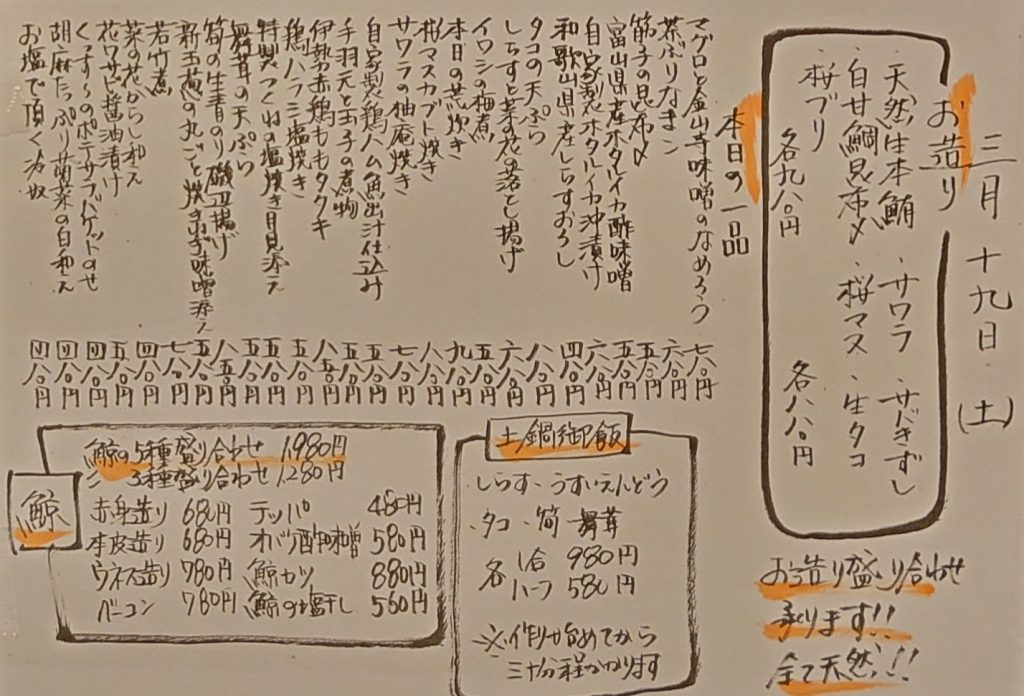 三月十九日(土)
お造り
・天然生本鮪 ・サワラ ・サバきずし
・白甘鯛昆布〆 ・桜マス ・生タコ
・桜ブリ
各九八〇円 各八八〇円
お造り盛り合わせ
承ります!!
全て天然!!
本日の一品
マグロと金山寺味噌のなめろう 七八〇円
茶ぶりなまこ 六八〇円
筋子の昆布〆 五八〇円
富山県産ホタルイカ酢味噌 五八〇円
自家製ホタルイカ沖漬け 六八〇円
和歌山県産しらすおろし 四八〇円
しらすと菜の花の落とし揚げ 八八〇円
タコの天ぷら 六八〇円
イワシの梅煮 五八〇円
本日の荒炊き 九八〇円
桜マスカブト焼き 八八〇円
サワラの柚庵焼き 七八〇円
自家製鶏ハム魚出汁仕込み 五八〇円
手羽元と玉子の煮物 五八〇円
伊勢赤鶏ももタタキ 八五〇円
鶏ハラミ塩焼き 五八〇円
特製つくねの塩焼き月見添え 五八〇円
舞茸の天ぷら 五八〇円
筍の生青のり磯辺揚げ 八五〇円
新玉葱の丸ごと焼き 味噌添え 五八〇円
若竹煮 七八〇円
菜の花からし和え 四八〇円
花ワサビ醤油漬け 五八〇円
くっすーのポテサラバゲットのせ 四八〇円
胡麻たっぷり菊菜の白和え 四八〇円
お塩で頂く冷奴 四八〇円
土鍋御飯
・しらす・うすいえんどう
・タコ・筍 舞茸
各 1合 980円
ハーフ 580円
※作り始めてから
三十分程かかります
鯨
鯨の5種盛り合わせ 1,980円
〃 3種盛り合わせ 1,280円
赤身造り 680円 テッパ 480円
本皮造り 680円 オバケ酢味噌 580円
ウネス造り 780円 鯨カツ 880円
ベーコン 780円 鯨の塩干し 560円